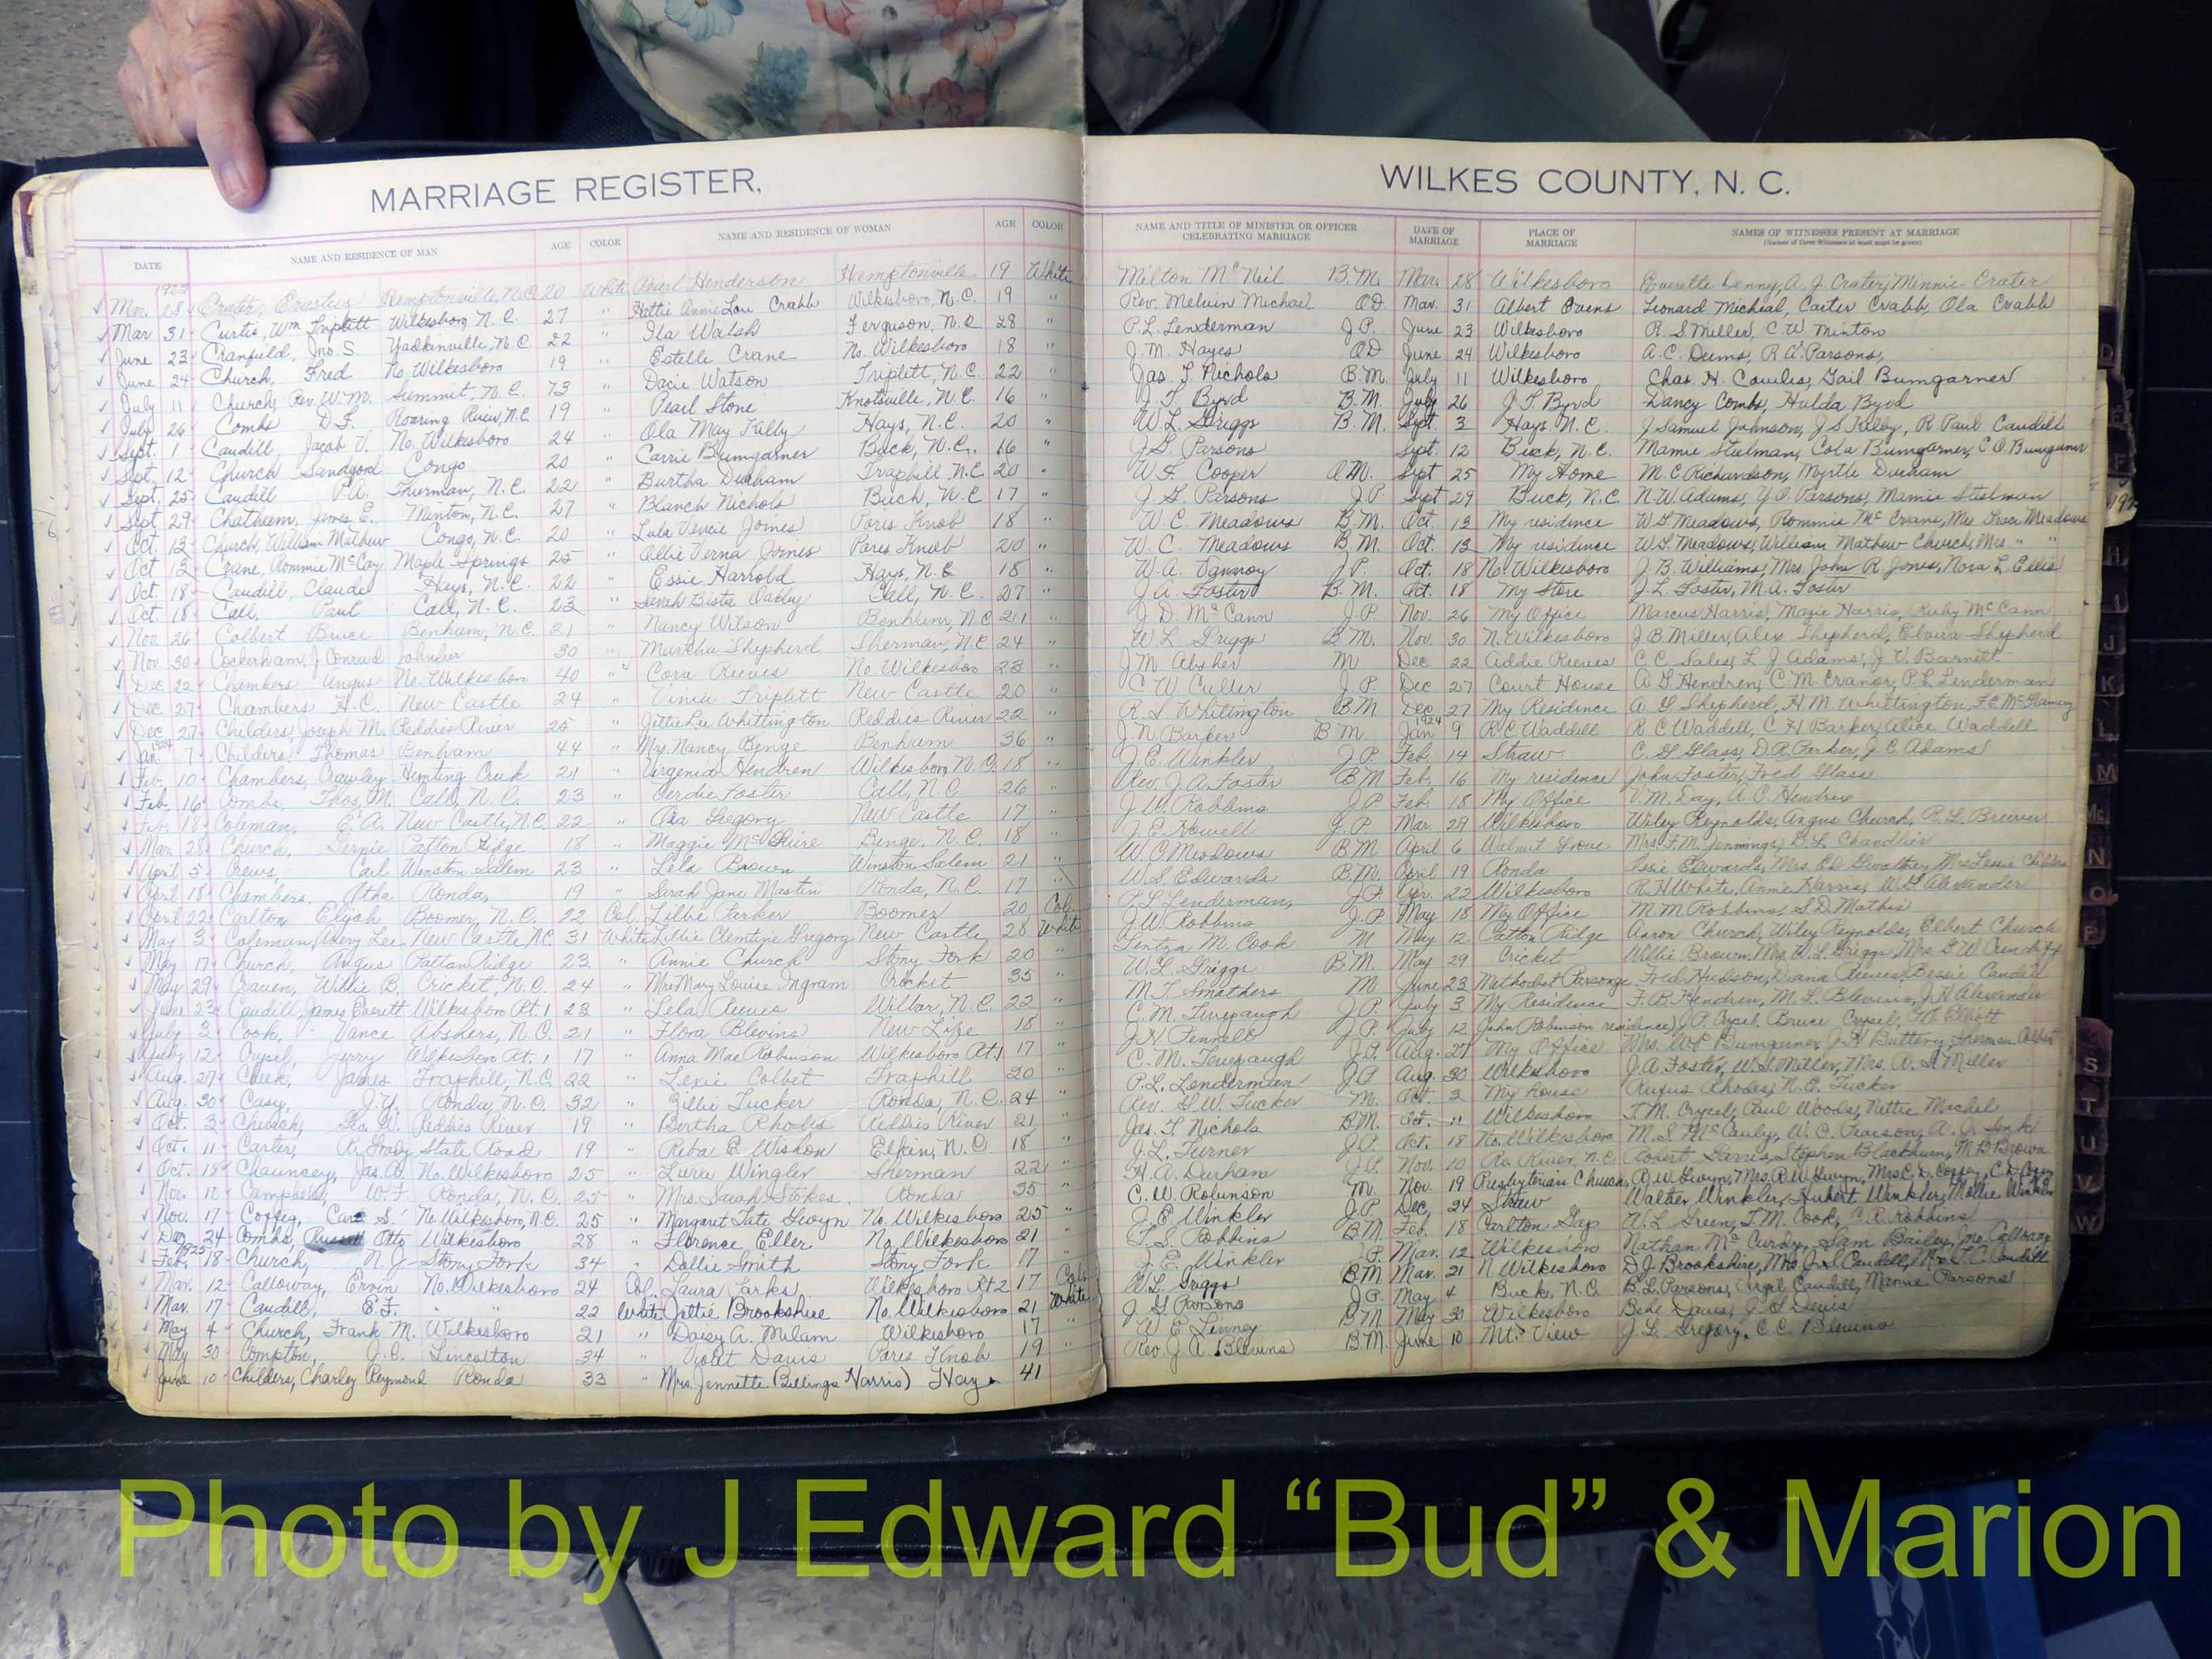 MARRIAGE REGISTER,
WILKES COUNTY, N. C.
DATE NAME AND RESIDENCE OF MAN AGE COLOR NAME AND RESIDENCE OF WOMAN AGE COLOR
NAME AND TITLE OF MINISTER OR OFFICER CELEBRATING MARRIAGE DATE OF MARRIAGE PLACE OF MARRIAGE NAMES OF WITNESSES PRESENT AT MARRIAGE
(Names of three Witnesses at least must be given)
1923
Mar. 28 Crater, Hamptonville, N.C. 20 White Pearl Henderson Hamptonville 19 White
Mar 31 Curtis, Wm Triplett Wilkesboro, N.C. 27 " Hattie Annie Lou Crabb Wilkesboro, N.C. 19 "
June 23 Cranfield, Jno. S. Yadkinville, N.C. 22 " Ila Walsh Ferguson, N.C. 28 "
June 24 Church, Fred No. Wilkesboro 19 " Estelle Crane No. Wilkesboro 18 "
July 11 Church, Rev. W. M. Summit, N.C. 73 " Dacie Watson Triplett, N.C. 22 "
July 26 Combs D. F. Roaring River, N.C. 19 " Pearl Stone Knotville, N.C. 16 "
Sept. 1 Caudill, Jacob V. No. Wilkesboro 24 " Ola May Kilby Hays, N.C. 20 "
Sept. 12 Church Sandford Congo 20 " Carrie Bumgarner Buck, N.C. 16 "
Sept. 25 Caudill P.A. Thurman, N.C. 22 " Burtha Durham Traphill, N.C. 20 "
Sept 29 Chathum, James E. Minton, N.C. 27 " Blanch Nichols Buck, N.C. 17 "
Oct. 13 Church, William Mathew Congo, N.C. 20 " Lula Vencie Joines Pores Knob 18 "
Oct 13 Crane, Rommie McCoy Maple Springs 25 " Ollie Verna Joines Pores Knob 20 "
Oct. 18 Caudill, Claude Hays, N.C. 22 " Essie Harrold Hays, N.C. 18 "
Oct. 18 Call, Paul Call, N.C. 23 " Call, N.C. 27 "
Nov. 26 Colbert Bruce Benham, N.C. 21 " Nancy Wilson Benham, N.C. 21 "
Nov. 30 Cockerham, J. Conrad 30 " Martha Shepherd Sherman, N.C. 24 "
Dec 22 Chambers Angus No. Wilkesboro 40 " Cora Reeves No. Wilkesboro 28 "
Dec 27 Chambers H.C. New Castle 24 " Vinia Triplett New Castle 20 "
Dec 27 Childers, Joseph M. Reddies River 25 " Whittington Reddies River 22 "
1924
Jan. 7 Childers Thomas Benham 44 " Mrs. Nancy Benge Benham 36 "
Feb. 10 Chambers, Crawley Hunting Creek 21 " Virginia Hendren Wilkesboro, N.C. 18 "
Feb 16 Combs, Thos. M. Call, N.C. 23 " Verdie Foster Call, N.C. 26 "
Feb. 18 Coleman, E. A. New Castle, N.C. 22 " Ora Gregory New Castle 17 "
Mar. 28 Church, Patton Ridge 18 " Maggie McGuire Benge, N.C. 18 "
April 5 Crews, Carl Winston Salem 23 " Lela Brown Winston Salem 21 "
April 18 Chambers, Otha Ronda, 19 " Sarah Jane Mastin Ronda, N.C. 17 "
April 22 Carlton, Elijah Boomer, N.C. 22 Col. Lillie Parker Boomer 20 Col.
May 3 Coleman, Avery Lee New Castle N.C. 31 White Lillie Clemtine Gregory New Castle 28 White
May 17 Church, Angus Pattan Ridge 23 " Annie Church Stony Fork 20 "
May 29 Craven, Willie B. Cricket, N.C. 24 " Mrs Mary Louise Ingram Cricket 35 "
June 23 Caudill, James Everett Wilkesboro Rt. 1 23 " Lela Reeves Wilbar, N.C. 22 "
July 3 Cook, Vance Abshers, N.C. 21 " Flora Blevins New Life 18 "
July 12 Crysel, Jerry Wilkesboro Rt. 1 17 " Anna Mae Robinson Wilkesboro Rt. 1 17 "
Aug. 27 Cheek, James Traphill, N.C. 22 " Lexie Colbet Traphill 20 "
Aug. 30 Casy, J.Y. Ronda, N.C. 32 " Billie Tucker Ronda, N.C. 24 "
Oct. 3 Church, Geo. W. Reddies River 19 " Bertha Rhodes Reddies River 21 "
Oct. 11 Carter, R. Grady State Road 19 " Reba E. Wishon Elkin, N.C. 18 "
Oct. 18 Chauncey, Jas. A. No. Wilkesboro 25 " Lura Wingler Sherman 22 "
Nov. 10 Campbell, W. F. Ronda, N.C. 25 " Mrs. Sarah Stokes Ronda 35 "
Nov. 17 Coffey, Carl S. No. Wilkesboro, N.C. 25 " Margaret Tate Gwyn No. Wilkesboro 25 "
Dec. 24 Combs, Otto Wilkesboro 28 " Florence Eller No. Wilkesboro 21 "
1925
Feb. 18 Church, N. J. Stony Fork 34 " Dollie Smith Stony Fork 17 "
Mar. 12 Calloway, Ervin No. Wilkesboro 24 Col. Laura Parks Wilkesboro Rt 2 17 Col.
Mar. 17 Caudill, " " 22 White Brookshire No. Wilkesboro 21 White
May 4 Church, Frank M. Wilkesboro 21 " Daisy A. Milam Wilkesboro 17 "
May 30 Compton, J. C. Lincolton 34 " Violet Davis Pores Knob 19 "
June 10 Childers, Charley Reymond Ronda 33 " Mrs. Jennette (Billings Harris) Hay 41
Milton McNeil B.M. Mar. 28 Wilkesboro Everette Denny, A. J. Crater, Minnie Crater
Rev. Melvin Michael OD Mar. 31 Albert Ovens Leonard Micheal, Carter Crabb, Ola Crabb
P.L. Lenderman J.P. June 23 Wilkesboro R. S Miller, C. W. Minton
J. M. Hayes OD June 24 Wilkesboro A.C. Deims, R. A. Parsons,
Jas. F. Nichols B.M. July 11 Wilkesboro Chas. H. Cowles, Gail Bumgarner
J. F. Byrd B.M. July 26 J. F. Byrd Dancy Combs, Hulda Byrd
W. L. Griggs B.M. Sept. 3 Hays N.C. J. Samuel Johnson, J. S. Kilby, R. Paul Caudill
J. G. Parsons Sept. 12 Buck, N.C. Mamie Steelman, Cola Bumgarner, C. O. Bumgarner
W. F. Cooper O.M. Sept 25 My Home M. C. Richardson, Myrtle Durham
J. G. Parsons J.P. Sept 29 Buck, N.C. N. W. Adams, Y. O. Parsons, Mamie Steelman
W. C. Meadows B.M. Oct. 13 My residence W. G. Meadows, Rommie McCrane, Mrs Grace Meadows
W. C. Meadows B.M. Oct. 13 My residence W. G. Meadows, William Mathew Church, Mrs " "
W. A. Vannoy J.P. Oct. 18 No. Wilkesboro J. B. Williams, Mrs. John R. Jones, Nora L. Ellis
J. A. Foster B.M. Oct. 18 My Store J. L. Foster, M. A. Foster
J. D. McCann J.P. Nov. 26 My Office Marcus Harris, Mazie Harris, Ruby McCann
W. L. Griggs B.M. Nov. 30 N. Wilkesboro J. B. Miller, Alex Shepherd, Elvira Shepherd
J. M. Absher M Dec 22 Addie Reeves C. C. Sales, L. J. Adams, J. V. Barnett
C. W. Culler J.P. Dec 27 Court House A. G. Hendren, C. M. Cranor, P. L. Lenderman
R. L. Whittington B.M Dec 27 My Residence A. G. Shepherd, H M Whittington,
1924
J. N. Barker B M Jan 9 R. C. Waddill R C Waddill, C H Barker, Alice Waddell
J. E. Winkler J.P. Feb. 14 Straw C. G. Glass, D. R. Parker, J. C. Adams
Rev. J. A. Foster B M Feb. 16 My residence John Foster, Fred Glass
J. W. Robbins J.P Feb. 18 My Office V. M. Day, A. C. Hendrix
J. E. Howell J.P Mar. 29 Wilkesboro Wiley Reynolds, Angus Church, R. L. Brewer
W. C. Meadows B M April 6 Walnut Grove Mrs. F. M. Jennings, G. L. Chandler
W. S. Edwards B.M. April 19 Ronda Edwards,
P. L. Lenderman, J.P. Apr. 22 Wilkesboro R. H. White, Annie Harris, W. G. Alexander
J. W. Robbins J.P May 18 My Office M. M. Robbins, S. D. Mathis
M. Cook M May 12 Patton Ridge Aaron Church, Wiley Reynolds, Elbert Church
W. L. Griggs B.M. May 29 Cricket Willie Brown, Mrs. W. L. Griggs,
M. T. Smathers M June 23 Methodist Parsonage Fred Hudson, Dana Reeves, Bessie Caudill
C. M. Tevepaugh J.P. July 3 My Residence F. B. Hendren, M. F. Blevins, J. H. Alexander
J. H. Fennell J.P. July 12 John Robinson residence J. P. Crysel, Bruce Crysel,
C. M. Tevepaugh J.P. Aug. 27 My Office Mrs. W. P. Bumgarner,
P. L. Lenderman J.P Aug. 30 Wilkesboro J. A. Foster, W. G. Miller, Mrs. A. S. Miller
Rev. G. W. Tucker M. Oct. 3 My house Rufus Rhodes, N. E. Tucker
Jas. F. Nichols B.M. Oct. 11 Wilkesboro T. M. Crysel, Paul Woods, Nettie Michel
J. L. Turner J.P. Oct. 18 No. Wilkesboro M. S. McCauly, W. C. Pearson, A. J. Sink
H. A. Durham J.P. Nov. 10 Ro. River, N.C. Robert Harris, Stephen Blackburn, M. B. Brown
C. W. Robinson M. Nov. 19 Presbyterian Church R. W. Gwyn, Mrs. R. W. Gwyn, Mrs. C. D. Coffey, C. D. Coffey
J. E. Winkler J.P Dec. 24 Straw Walter Winkler, Hubert Winkler, Mollie Winkler
Robbins B.M. Feb. 18 Carlton Gap W. L. Green, T. M. Cook, C. R. Robbins
J. E. Winkler J.P. Mar. 12 Wilkesboro Nathan McCurdy, Sam Bailey, Jno. Calloway
W. L. Griggs B.M Mar. 21 N. Wilkesboro D. J. Brookshire,
J. G. Parsons J.P. May 4 Buck, N.C. B. L. Parsons, Virgil Caudill, Mamie Parsons
W. E. Linney B M May 30 Wilkesboro Davis, Davis
Rev. J. A. Blevins B.M. June 10 Mt. View J. L. Gregory, C. C. Blevins
D
F
192
H
I
J
K
L
M
Mc
N
O
P
S
T
U
V
W
Photo by J Edward “Bud” & Marion